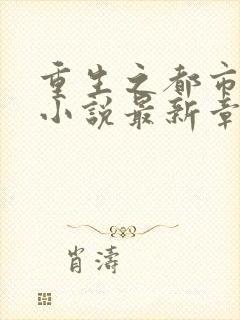 重生之都市
小説最新章
肖濤